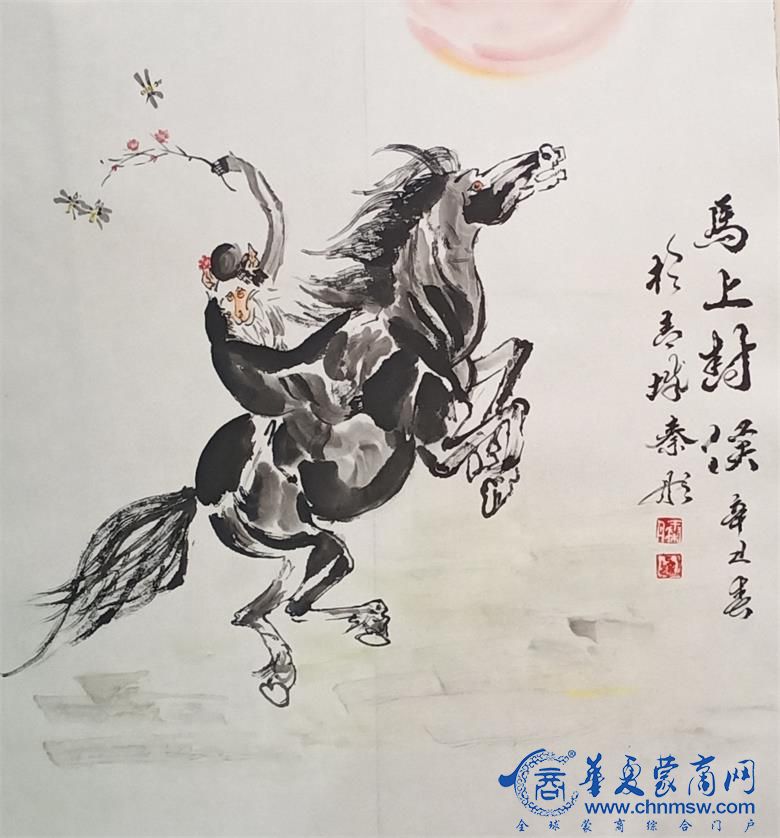 馬上封侯 辛丑春
於青城秦彤
華夏蒙商网
www.chnmsw.com
全球蒙商综合门户